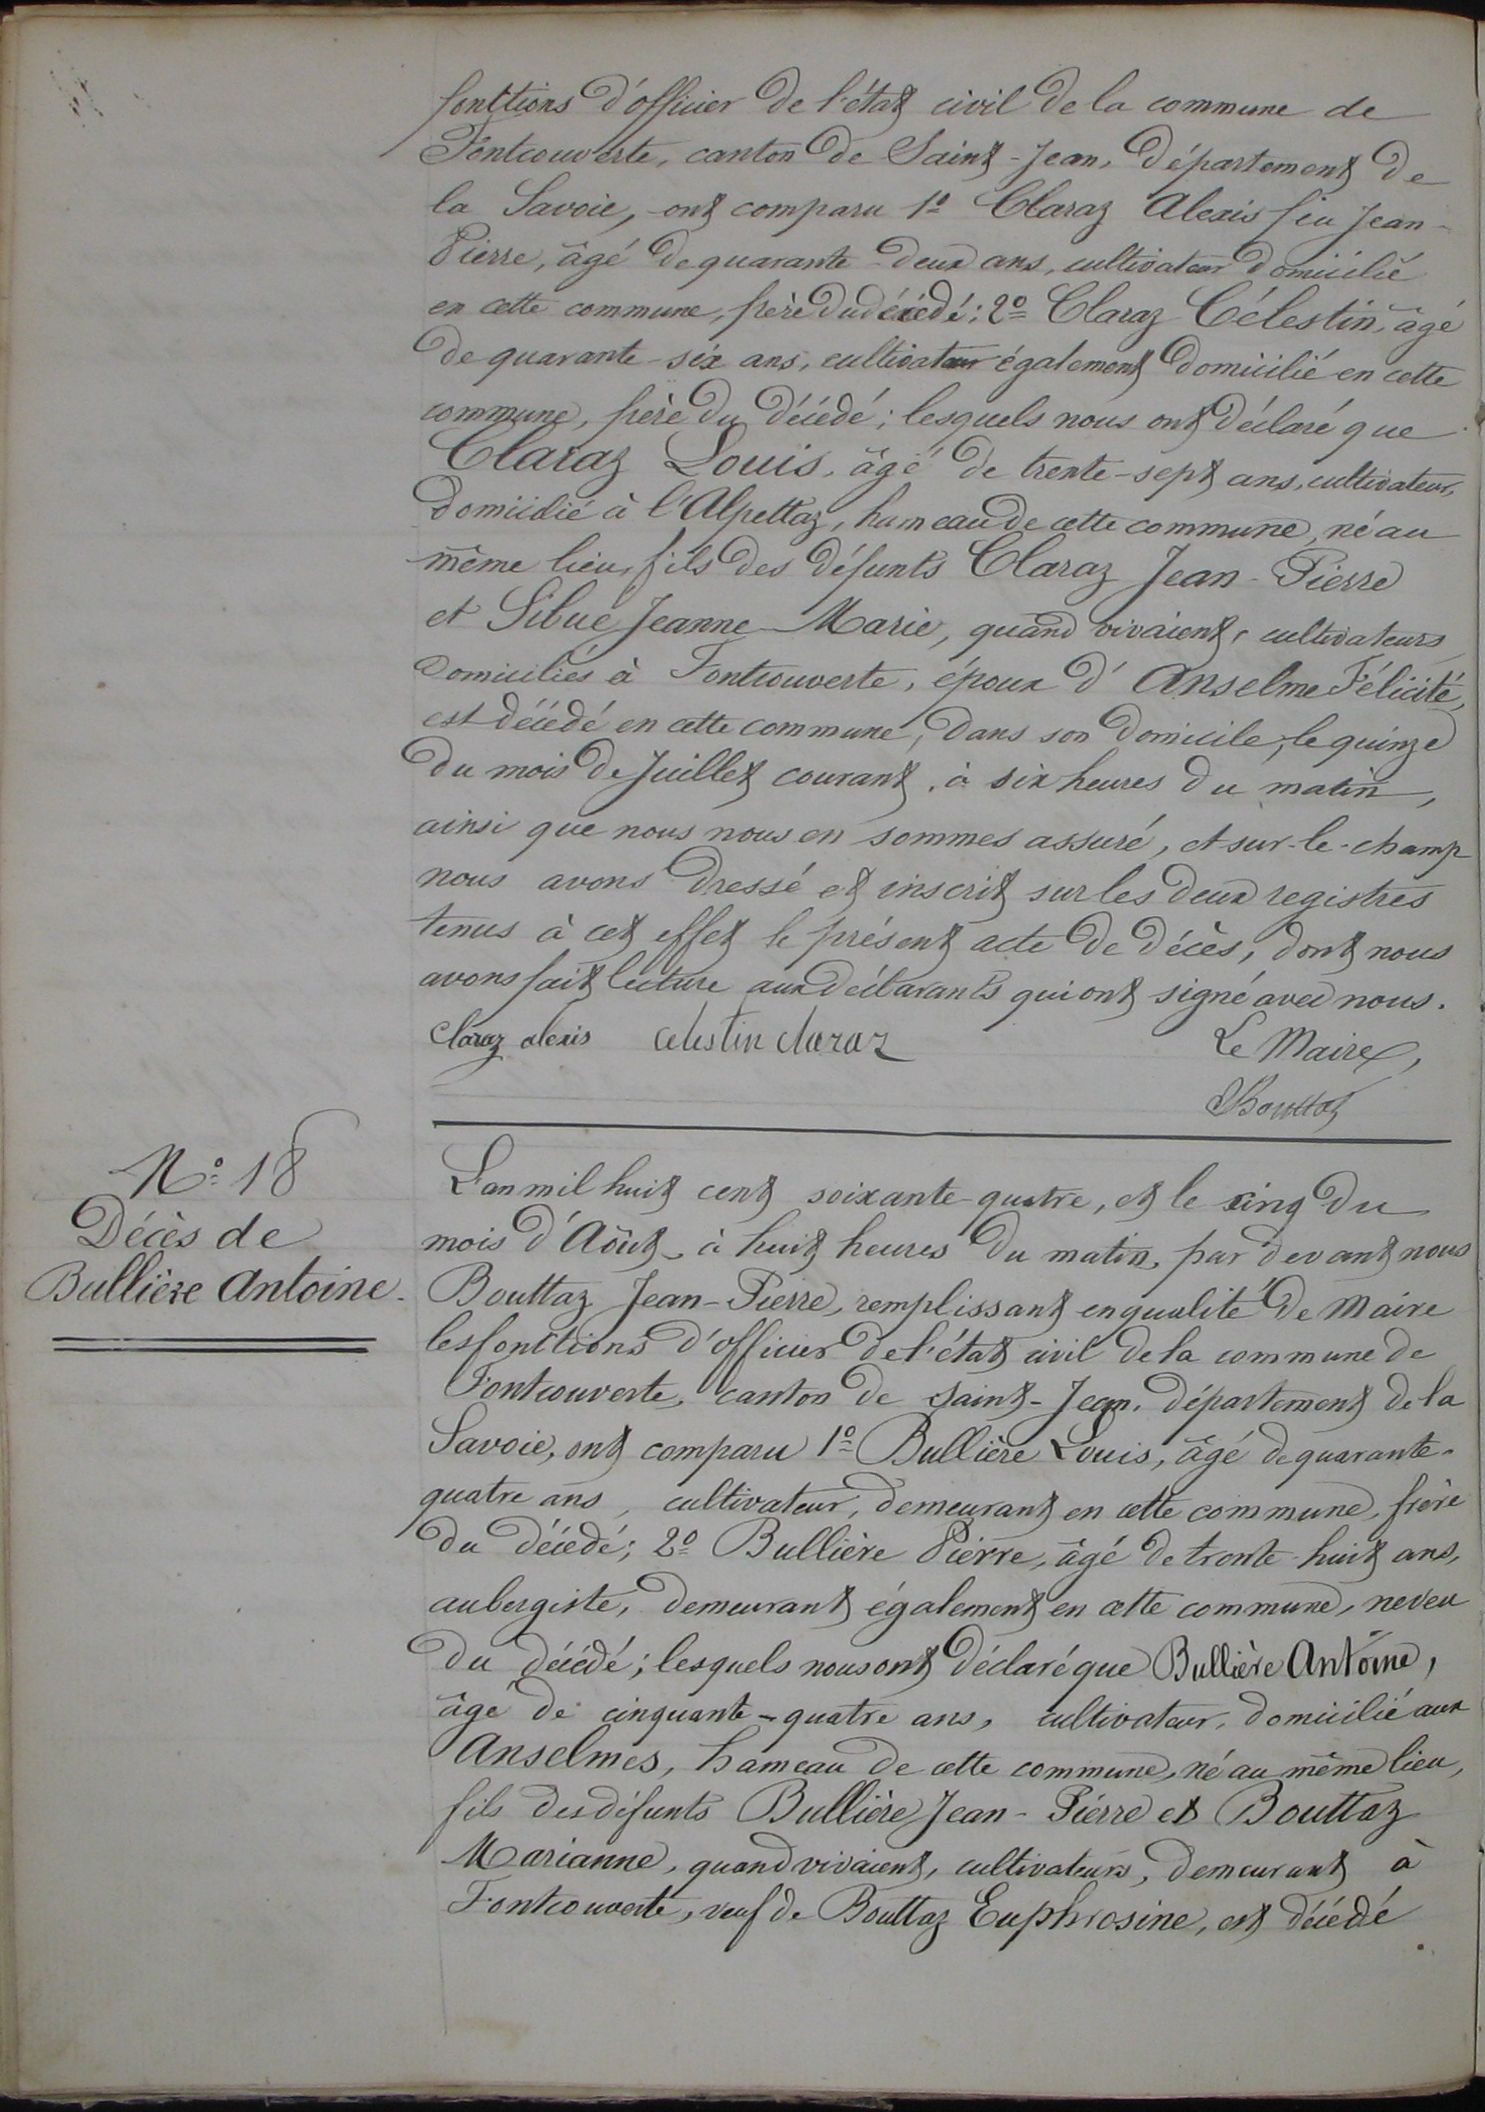 fonctions d'officier de l'état civil de la commune de
Fontcouverte, canton de Saint-Jean, département de
la Savoie, ont comparu 1º Claraz Alexis feu Jean-
Pierre, âgé de quarante-deux ans, cultivateur domicilié
en cette commune, frère du décédé; 2º Claraz Célestin, âgé
de quarante-six ans, cultivateur également domicilié en cette
commune, frère du décédé; lesquels nous ont déclaré que
Claraz Louis, âgé de trente-sept ans, cultivateur,
domicilié à l'Alpettaz, hameau de cette commune, né au
même lieu, fils des défunts Claraz Jean-Pierre
et Sibué Jeanne-Marie, quand vivaient, cultivateurs
domiciliés à Fontcouverte, époux d'Anselme Félicité,
est décédé en cette commune, dans son domicile, le quinze
du mois de Juillet courant, à six heures du matin,
ainsi que nous nous en sommes assuré, et sur-le-champ
nous avons dressé et inscrit sur les deux registres
tenus à cet effet le présent acte de décès, dont nous
avons fait lecture aux déclarants qui ont signé avec nous.
Claraz alexis celestin claraz Le Maire,
Bouttaz
Nº 18
Décès de
Bullière Antoine.
L'an mil huit cent soixante-quatre, et le cinq du
mois d'Août, à huit heures du matin, par devant nous
Bouttaz Jean-Pierre, remplissant en qualité de Maire
les fonctions d'officier de l'état civil de la commune de
Fontcouverte, canton de Saint-Jean, département de la
Savoie, ont comparu 1º Bullière Louis, âgé de quarante-
quatre ans, cultivateur, demeurant en cette commune, frère
du décédé; 2º Bullière Pierre, âgé de trente-huit ans,
aubergiste, demeurant également en cette commune, neveu
du décédé; lesquels nous ont déclaré que Bullière Antoine,
âgé de cinquante-quatre ans, cultivateur, domicilié aux
Anselmes, hameau de cette commune, né au même lieu,
fils des défunts Bullière Jean-Pierre et Bouttaz
Marianne, quand vivaient, cultivateurs, demeurant à
Fontcouverte, veuf de Bouttaz Euphrosine, est décédé